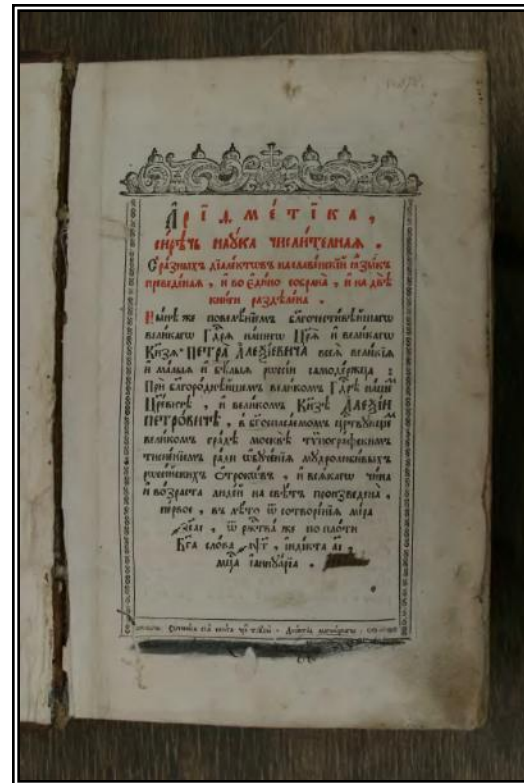 А҆ріѳме́тїка,
си́рѣчь наꙋ́ка числи́телнаѧ.
С̾ ра́зныхъ дїале́ктѡвъ на славе́нскїй ѧ҆зы́къ
преведе́наѧ, и҆ во є҆ди́но собрана̀, и҆ на двѣ̀
кни́ги раздѣле́на.
Ны́нѣ же повелѣ́нїемъ бл҃гочести́вѣйшагѡ
вели́кагѡ Гдⷭ҇рѧ на́шегѡ Цр҃ѧ̀ и҆ вели́кагѡ
Кн҃зѧ ПЕТРА̀ А҆ЛЕѮІ́ЕВИЧА всеѧ̀ вели́кїѧ
и҆ ма́лыѧ и҆ бѣ́лыѧ рѡссі́и самоде́ржца:
При бл҃горо́днѣйшемъ вели́комъ Гдⷭ҇рѣ на́шемъ
Цр҃е́вичѣ, и҆ вели́комъ Кн҃зѣ А҆ЛЕѮІ́И
ПЕТРО́ВИЧѢ, в̾ бг҃оспаса́емомъ цр҃твꙋющемъ
вели́комъ гра́дѣ москвѣ̀ тѷпогра́фскимъ
тисне́нїемъ ра́ди ѡ҆бꙋче́нїѧ мꙋдролюби́выхъ
рѡссі́йскихъ ѻ҆́трокѡвъ, и҆ всѧ́кагѡ чи́на
и҆ во́зраста люде́й на свѣ́тъ произведена̀,
пе́рвое, въ лѣ́то ѿ сотворе́нїѧ мі́ра
҂зс҃аі, ѿ рⷤ҇тва́ же по пло́ти
Бг҃а сло́ва ҂аѱ҃г, їнді́кта а҃і,
мцⷭ҇а і҆аннꙋа́рїа.
Сочини́сѧ сїѧ̀ кни́га чрез̾ трꙋды̀